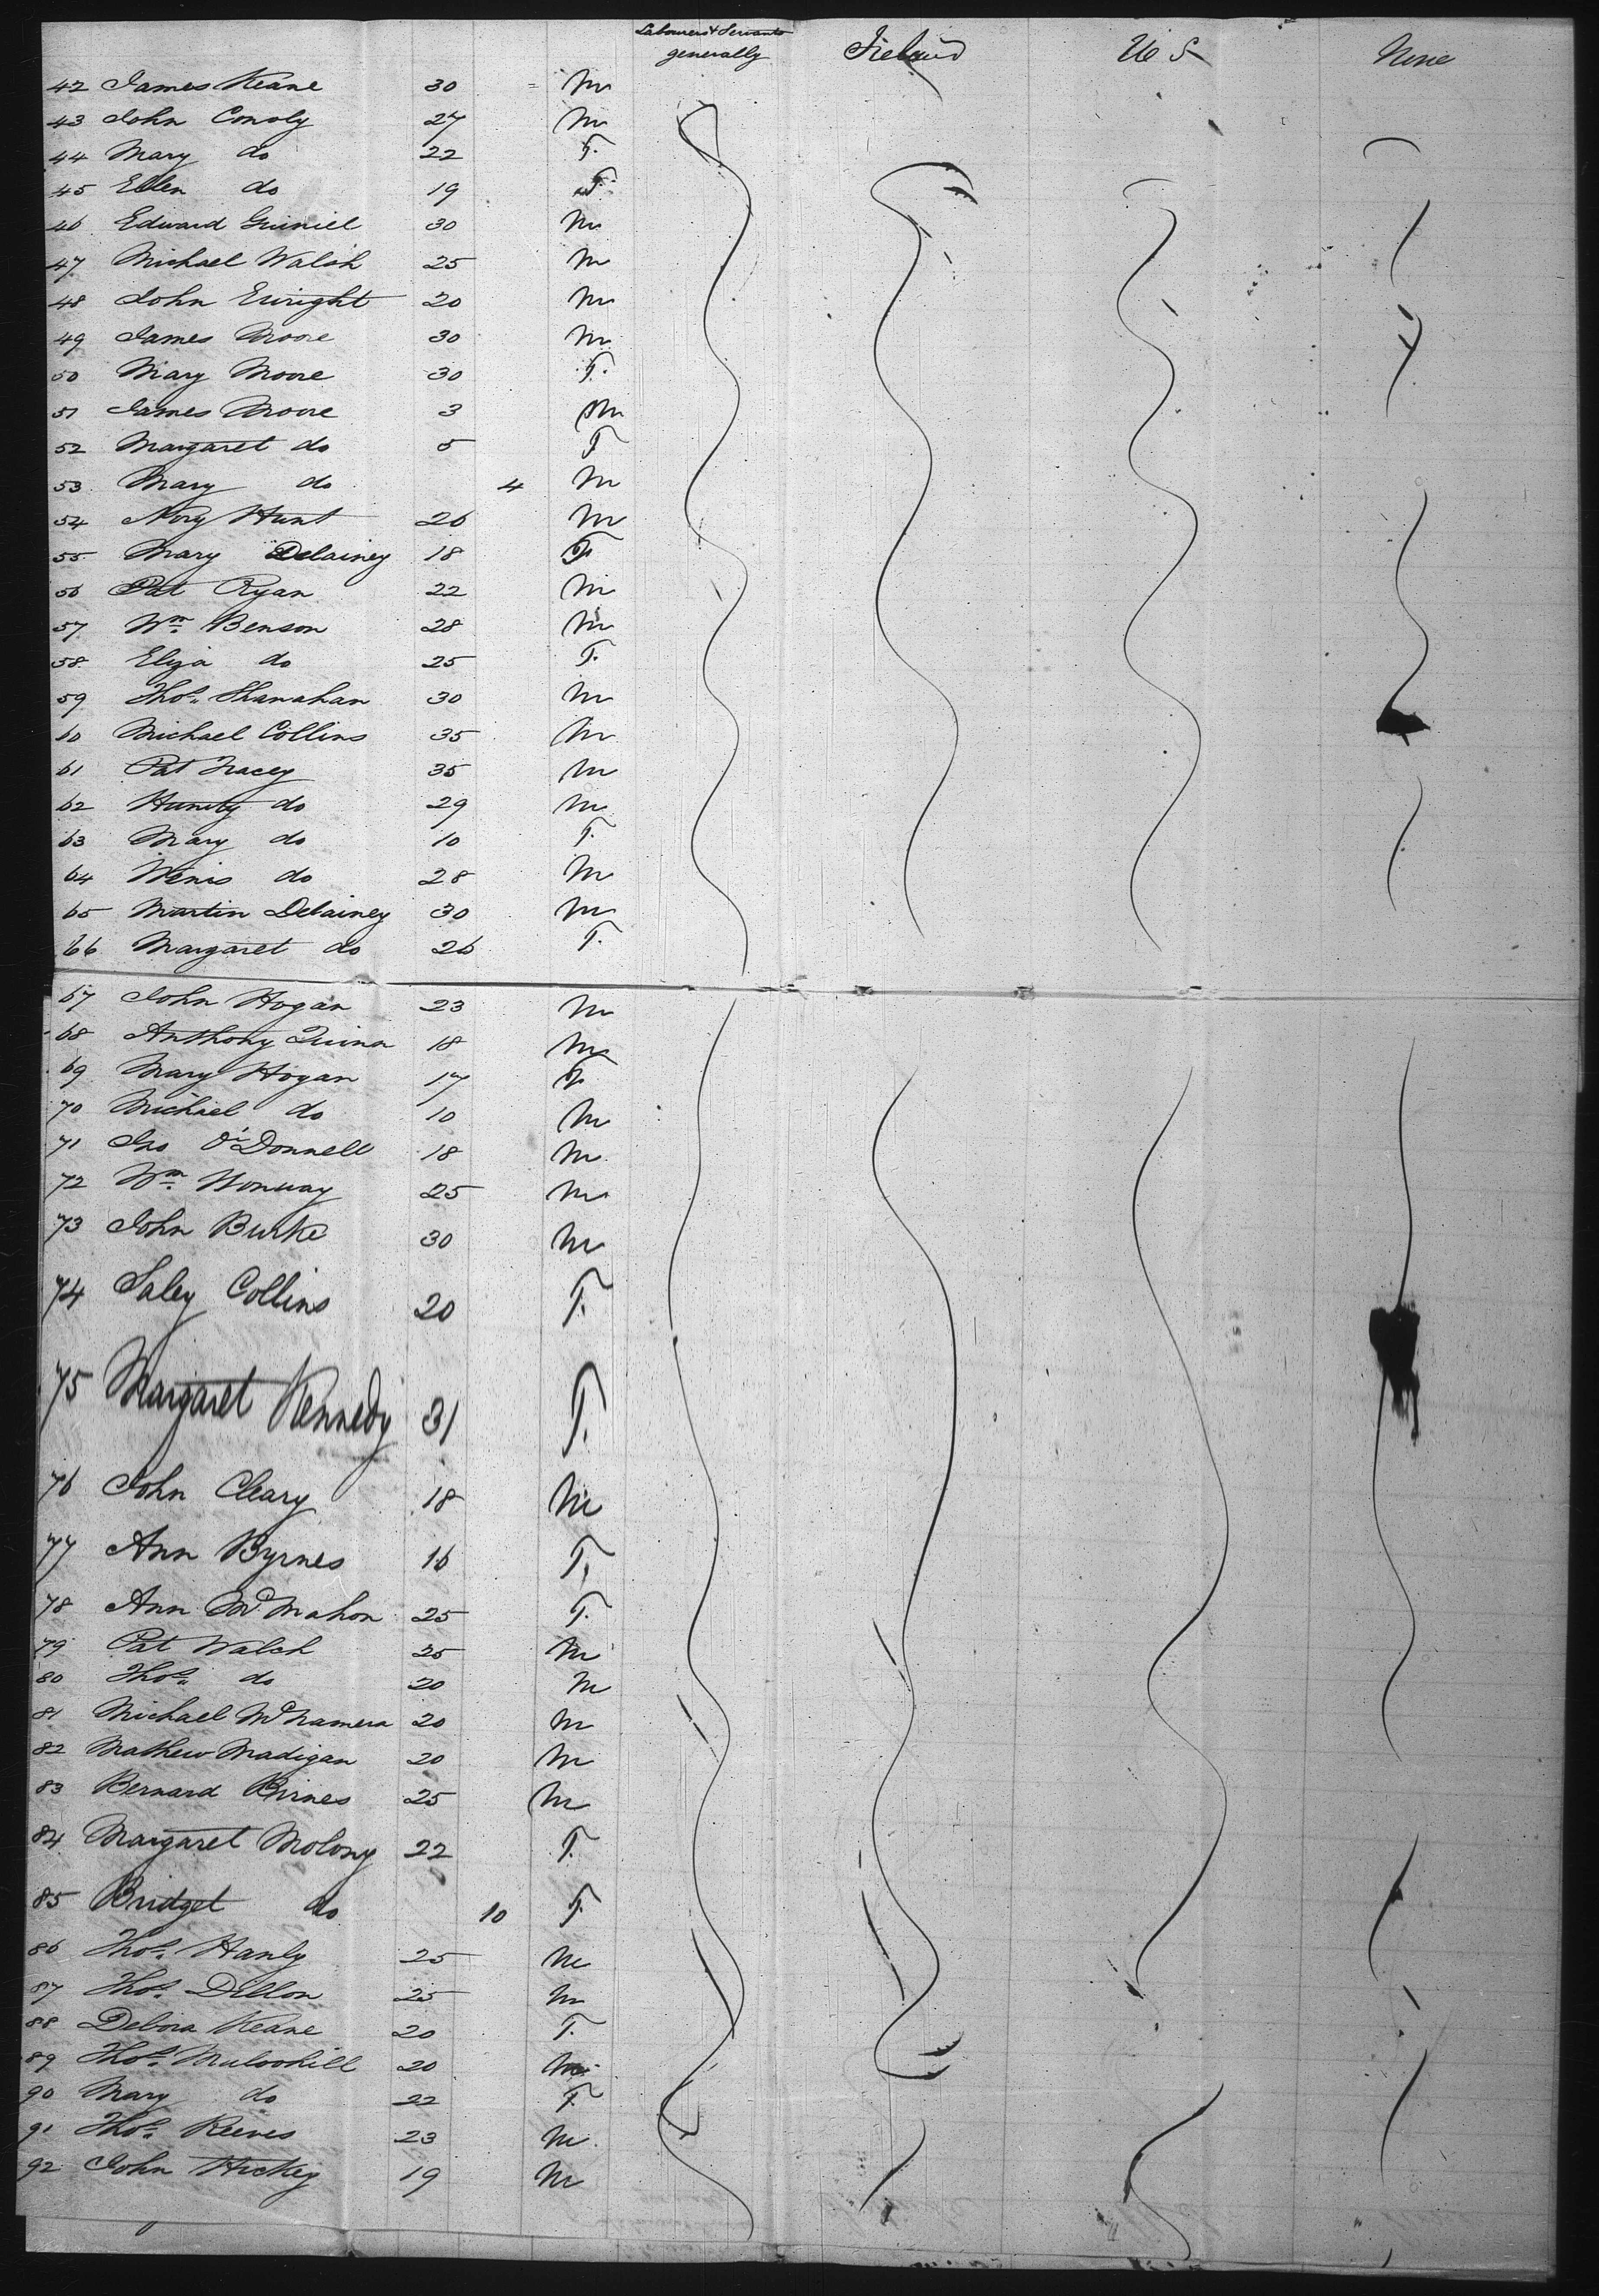 Labourers & Servants
generally Ireland U S None
42 James Keane 30 M
43 John Conoly 27 M
44 Mary do 22 F.
45 Ellen do 19 F.
46 Edward 30 M
47 Michael Walsh 25 M
48 John Enright 20 M
49 James Moore 30 M
50 Mary Moore 30 F.
51 James Moore 3 M
52 Margaret do 5 F
53 Mary do 4 M
54 Nory Hunt 26 M
55 Mary Delainey 18 F
56 Pat Ryan 22 M
57 Wm. Benson 28 M
58 Eliza do 25 F.
59 Thos. Shanahan 30 M
60 Michael Collins 35 M
61 Pat Tracey 35 M
62 do 29 M
63 Mary do 10 F.
64 Winis do 28 M
65 Martin Delainey 30 M
66 Margaret do 26 F.
67 John Hogan 23 M
68 Anthony Quinn 18 M
69 Mary Hogan 17 F
70 Michael do 10 M
71 Jno O'Donnell 18 M
72 Wm. 25 M
73 John Burke 30 M
74 Saley Collins 20 F.
75 Margaret Kennedy 31 F.
76 John Cleary 18 M
77 Ann Byrnes 16 F.
78 Ann McMahon 25 F.
79 Pat Walch 25 M
80 Thos. do 20 M
81 Michael McNamera 20 M
82 Mathew Madigan 20 M
83 Bernard Birnes 25 M
84 Margaret Molony 22 F.
85 Bridget do 10 F.
86 Thos. Hanly 25 M
87 Thos. Dillon 25 M
88 Debora Keane 20 F.
89 Thos. Muloohill 20 M
90 Mary do 22 F.
91 Thos. Reeves 23 M
92 John Hickey 19 M